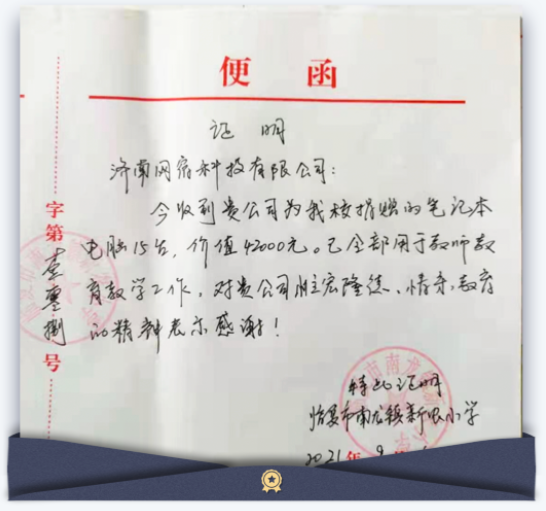 便函
证明
济南网宿科技有限公司：
今收到贵公司为我校捐赠的笔记本
电脑15台，价值42000元。已全部用于教师教
育教学工作，对贵公司宏隆德、情牵教育
的精神表示感谢！
特此证明
临夏市南龙镇新小学
2021年9
字第壹零捌号